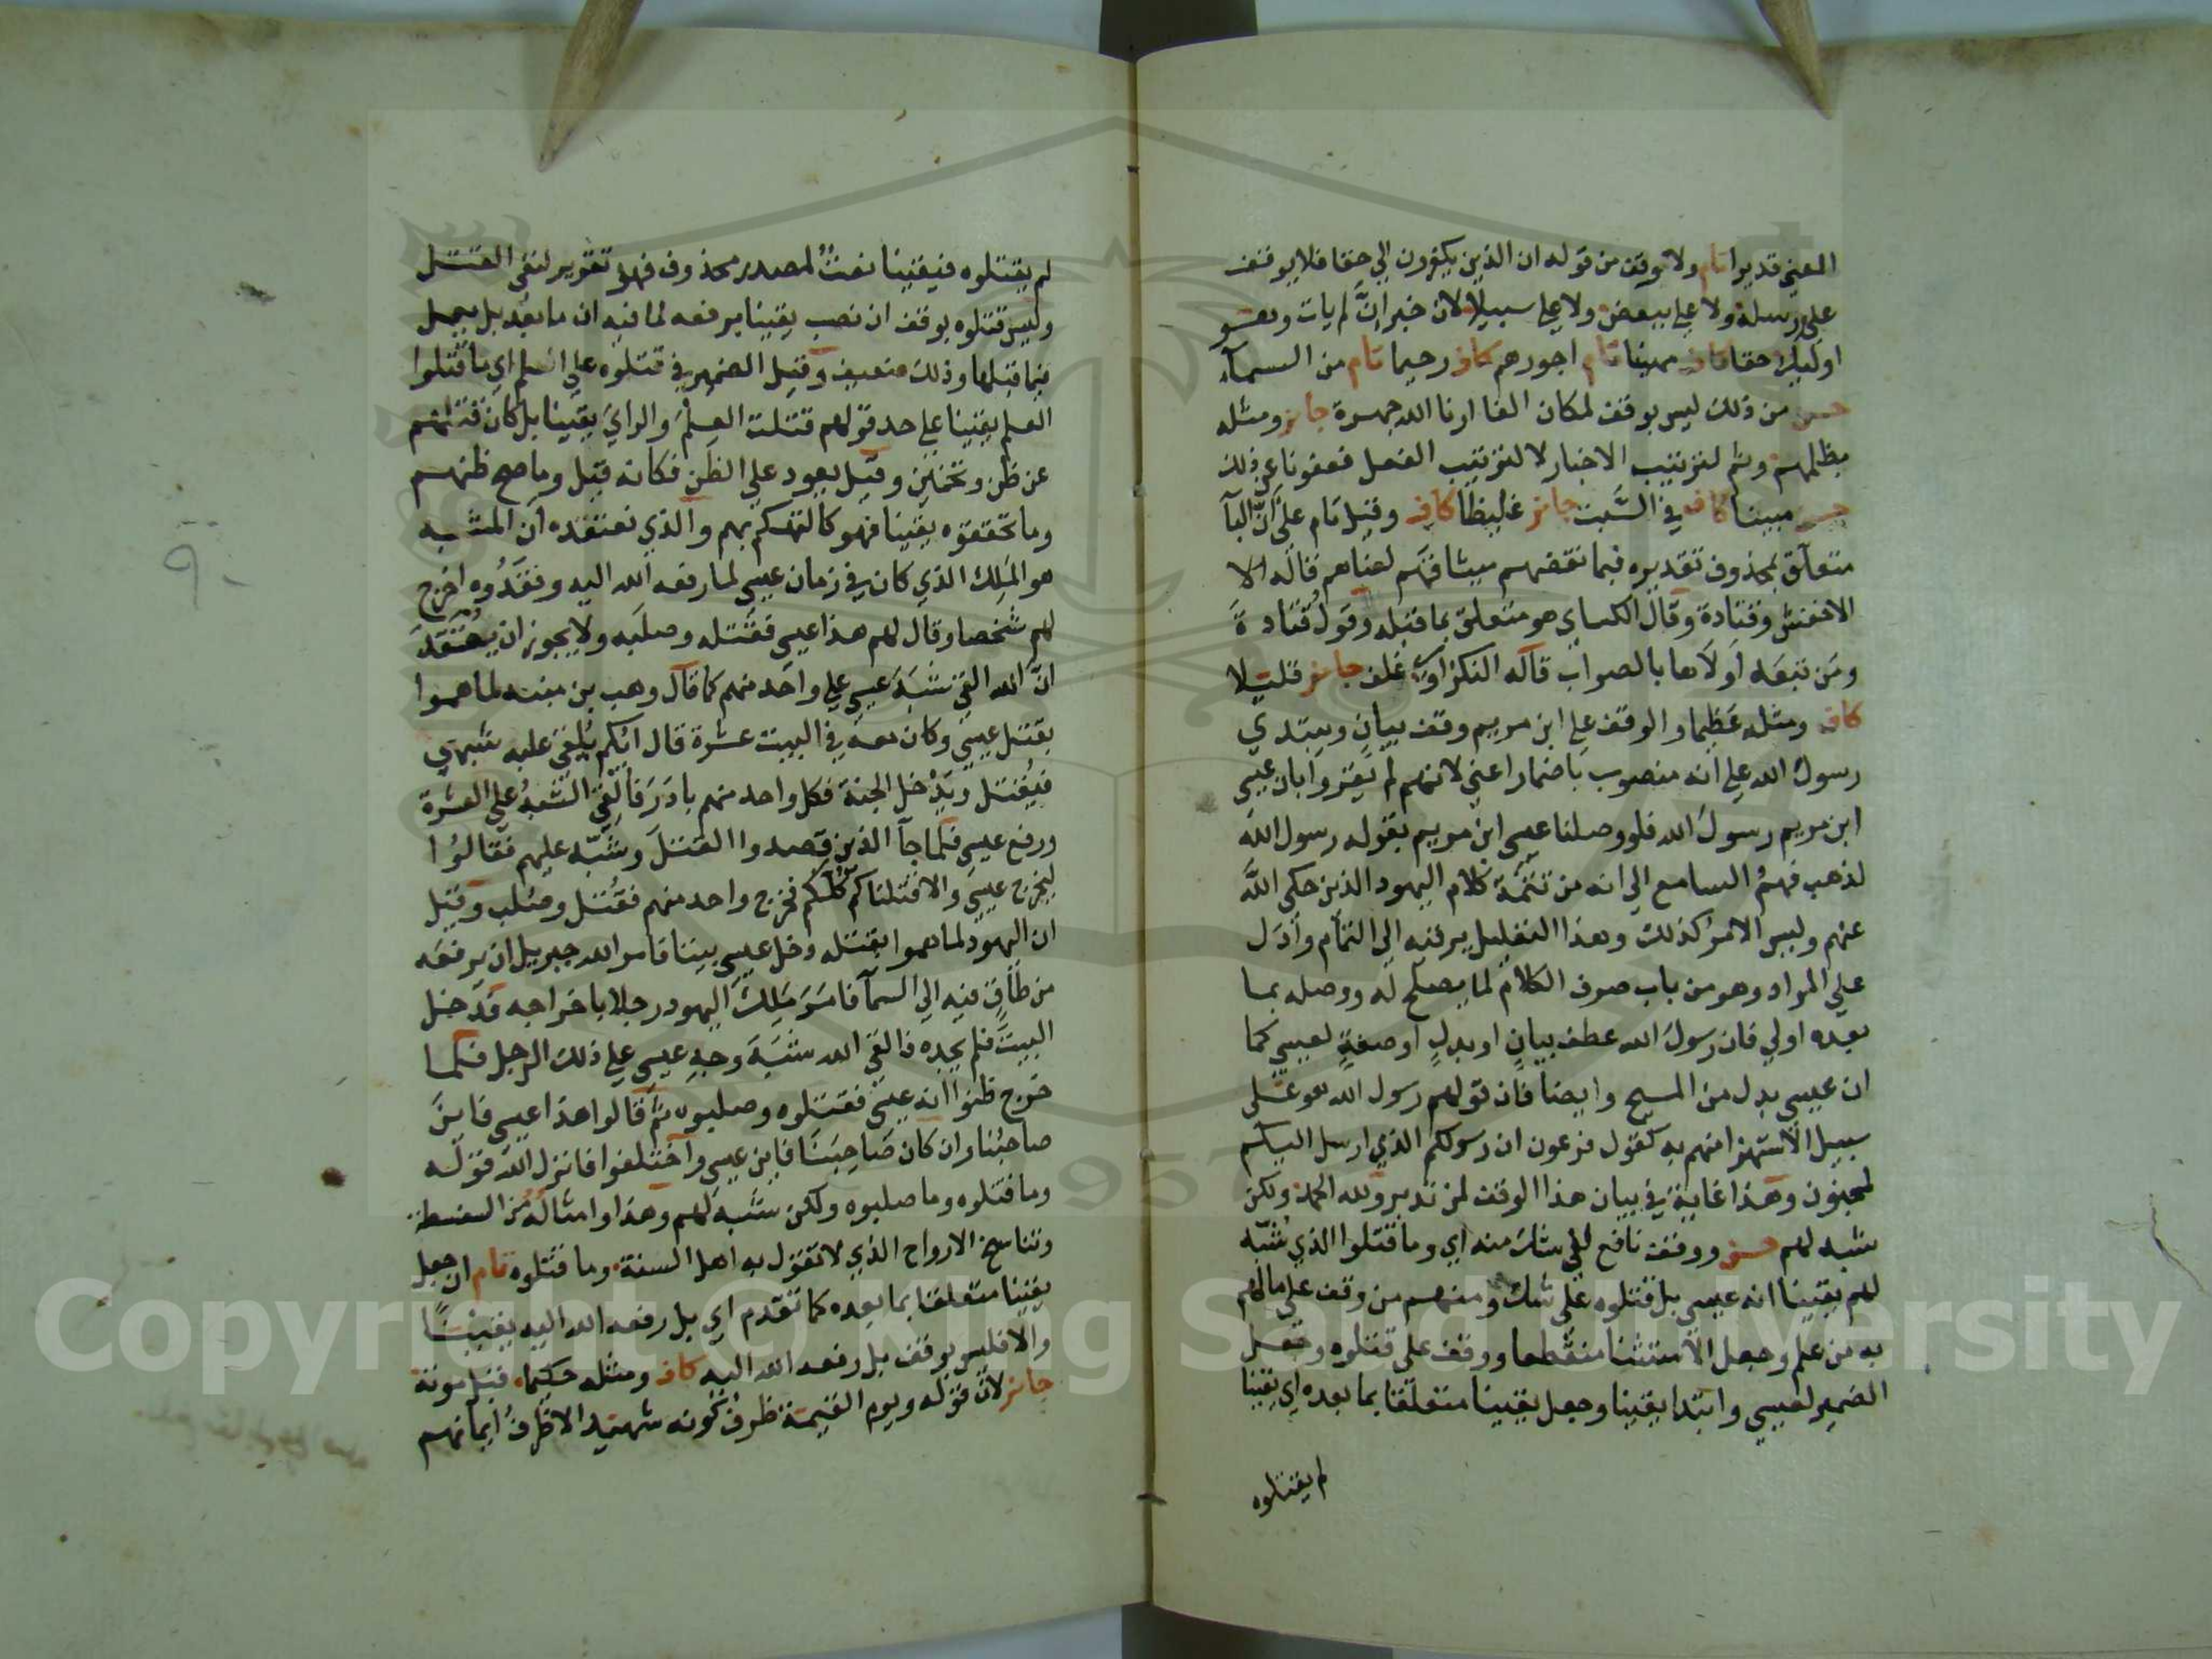 المعني قديرا تام ولا توقف من قوله ان الذين يكفرون الي حقا فلا يوقف
على رسله ولا على ببعض ولا على سبيلا لان خبر انَّ لم يات وهو
اوليك حقا كاف مهينا تام اجورهم كاف رحيما تام من السمآء
حسن من ذلك ليس بوقف لمكان الفا ارنا الله جهرة جايز ومثله
بظلمهم وثم لترتيب الاخبار لا لترتيب الفعل فعفونا عن ذلك
حسن مبينا كاف في السَّبت جايز غليظا كاف وقيل تام على انَّ البآ
متعلق بمحذوف تقديره فبما نقضهم ميثاقهم لعناهم قاله
الاخفش وقتادة وقال الكساي هو متعلق بما قبله وقول قتادة
ومن تبعه اولاها بالصواب قاله النكزاوي غلف جايز قليلا
كاف ومثله عظيما والوقف على ابن مريم وقف بيان ويبتدي
رسول الله على انه منصوب باضمار اعني لانهم لم يقروا بان عيسى
ابن مريم رسول الله فلو وصلنا عيسى ابن مريم بقوله رسول الله
لذهب فهم السامع الي انه من تتمة كلام اليهود الذين حكى الله
عنهم وليس الامر كذلك وهذا التعليل يرقيه الى التمام وادل
على المراد وهو من باب صرف الكلام لما يصلح له ووصله بما
بعده اولي فان رسول الله عطف بيان او بدل او صفة لعيسي كما
ان عيسى بدل من المسيح وايضا فان قولهم رسول الله هو على
سبيل الاستهزا منهم به كقول فرعون ان رسولكم الذي ارسل اليكم
لمجنون وهذا غاية في بيان هذا الوقف لمن تدبر ولله الحمد ولكن
شبه لهم حسن ووقف نافع لفي شك منه اي وما قتلوا الذي شبّه
لهم يقينا انه عيسي بل قتلوه على شك ومنهم من وقف على ما لهم
به من علم وجعل الاستثنا منقطعا ووقف على قتلوه وجعل
الضمير لعيسي وابتدا يقينا وجعل يقينا متعلقا بما بعده اي يقينا
لم يقتلوه
لم يقتلوه فيقينا نعتٌ لمصدر محذوف فهو تقرير لنفي القتل
وليس قتلوه بوقف ان نصب يقينا برفعه لما فيه ان ما بعد بل يعمل
فيما قبلها وذلك ضعيف وقيل الضمير في قتلوه على العلم اي ما قتلوا
العلم يقينا على حد قولهم قتلت العلم والراي يقينا بل كان قتلهم
عن ظن وتخمين وقيل يعود على الظن فكانه قيل وما صح ظنهم
وما تحققوه يقينا فهو كالتهكم بهم والذي نعتقده ان المشبه
هو الملك الذي كان في زمان عيسى لما رفعه الله اليه وفقدوه اخرج
لهم شخصا وقال لهم هذا عيسى فقتله وصلبه ولا يجوز ان يعتقد
انَّ الله القى شبه عيسى على واحد منهم كما قال وهب بن منبه لما هموا
بقتل عيسى وكان معه في البيت عشرة قال ايكم يلقى عليه شبهي
فيقتل ويدخل الجنة فكل واحد منهم بادر فالقي الشبه على العشرة
ورفع عيسى فلما جآ الذين قصدوا القتل وشبّه عليهم فقالوا
ليخرج عيسى والا قتلناكم كلكم فخرج واحد منهم فقتل وصلب وقيل
ان اليهود لما هموا بقتله دخل عيسى بيتا فامر الله جبريل ان يرفعه
من طاق فيه الى السمآ فامر ملك اليهود رجلا باخراجه فدخل
البيت فلم يجده فالقى الله شبه وجه عيسى على ذلك الرجل فلما
خرج ظنوا انه عيسى فقتلوه وصلبوه ثم قالوا هذا عيسى فاين
صاحبنا وان كان صاحبنا فاين عيسى واختلفوا فانزل الله قوله
وما قتلوه وما صلبوه ولكن شبه لهم وهذا وامثاله من السفسطة
وتناسخ الارواح الذي لا تقول به اهل السنة وما قتلوه تام ان جعل
يقينا متعلقا بما بعده كما تقدم اي بل رفعه الله اليه يقينًا
والا فليس بوقف بل رفعه الله اليه كاف ومثله حكيما قبل موته
جايز لان قوله ويوم القيمة ظرف كونه شهيد الا ظرف ايمانهم
Copyright © King Saud University
1957